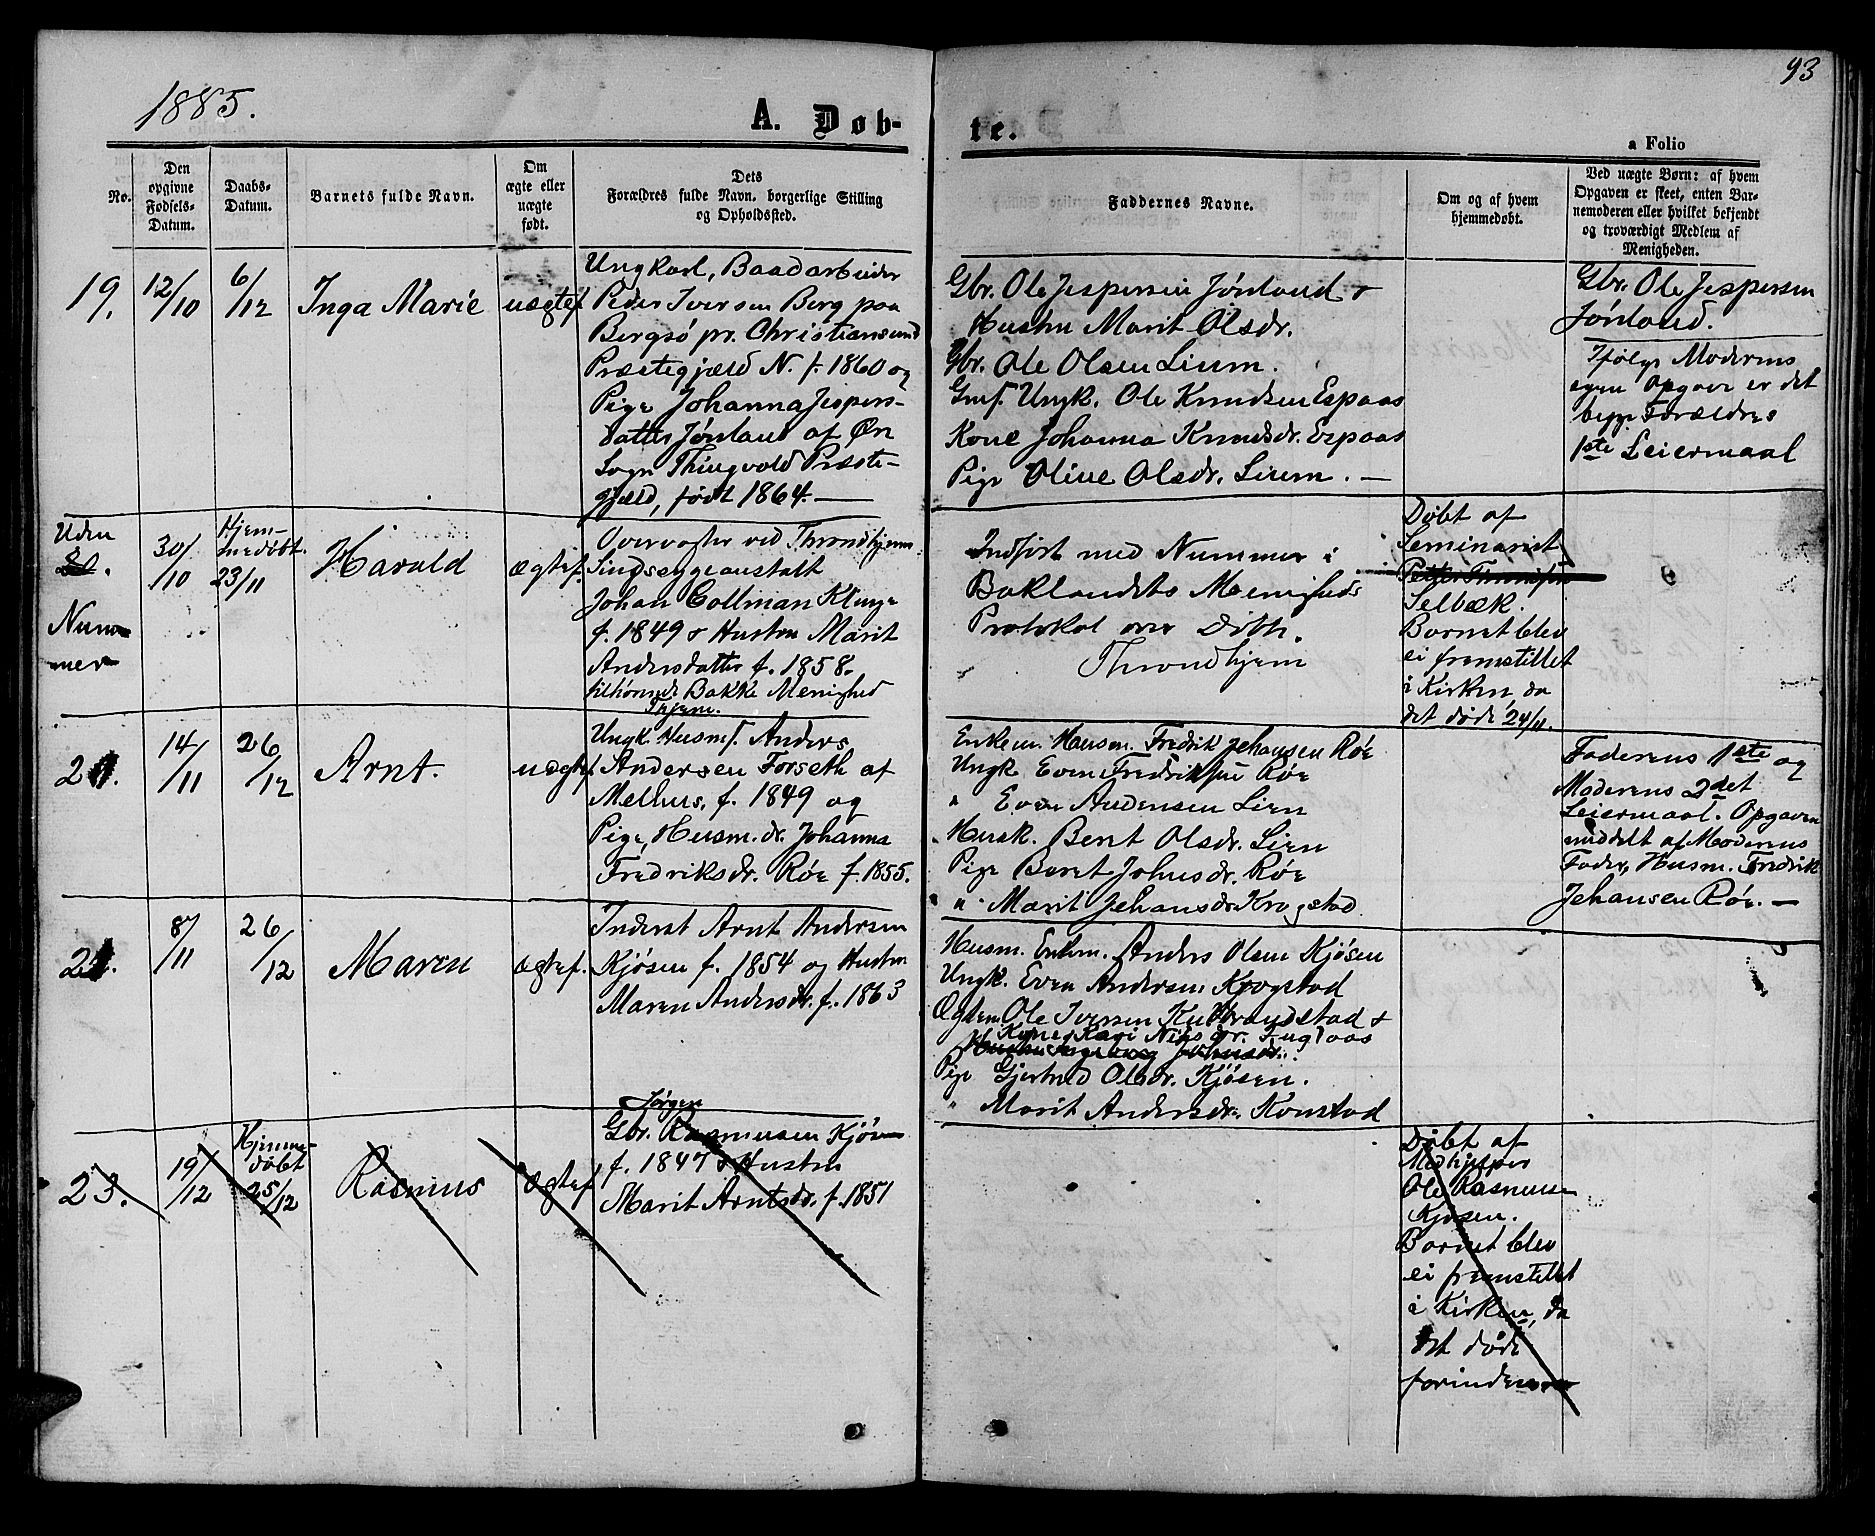 1885.
93
A. Døb-
te.
a Folio
No.
Den
opgivne
Fødsels-
Datum.
Daabs-
Datum.
Barnets fulde Navn.
Om
ægte eller
uægte
født.
Dets
Forældres fulde Navn, borgerlige Stilling
og Opholdssted.
Faddernes Navne.
Om og af hvem
hjemmedøbt.
Ved uægte Børn: af hvem
Opgaven er skeet, enten Bar-
nemoderen eller hvilket bekjendt
og troværdigt Medlem af
Menigheden.
19.
12/10
6/12
Inga Marie
uægtef.
Ungkarl, Baadarbeider
Peder Iversen Berg paa
Bergsø pr. Christiansund
Præstegjæld N. f. 1860 og
Pige Johanna Jespers-
datter Jønland af Øn
Sogn Thingvold Præste-
gjæld, født 1864.
Gbr. Ole Jespersen Jønland &
Hustru Marit Olsdr.
Gbr. Ole Olsen Lium.
Gmf. Ungk. Ole Knudsen Espaas
Kone Johanna Knudsdr. Espaas
Pige Oline Olsdr. Lium.
Gbr. Ole Jespersen
Jønland.
Ifølge Moderens
egen Opgave er det
begge Forældres
1ste Leiermaal
Uden
Num-
mer
30/10
Hjem-
medøbt.
23/11
Harald
ægtef.
Overvogter ved Throndhjems
Sindsygeanstalt
Johan Collman Klinge
f. 1849 & Hustru Marit
Andersdatter f. 1858.
tilhørende Bakke Menighed
Thjem.
Indført med Nummer i
Baklandets Menigheds
Protokol over Døbte.
Throndhjem
Døbt af
Seminarist
Petter Thomsen
Selbæk.
Barnet blev
ei fremstillet
i Kirken da
det døde 24/11.
20.
14/11
26/12
Arnt.
uægtef.
Ungk. Husmf. Anders
Andersen Forseth af
Melhus, f. 1849 og
Pige, Husm. dr. Johanna
Fredriksdr. Røe f. 1855.
Enkem. Husm. Fredrik Jehansen Røe
Ungk. Even Fredriksen Røe
" Even Andersen Lien
Husk. Berit Olsdr. Lien
Pige Beret Johnsdr. Røe
" Marit Jehansdr Krogstad
Faderens 1ste og
Moderens 2det
Leiermaal. Opgaven
meddelt af Moderens
Fader, Husm. Fredrik
Jehansen Røe.
21.
8/11
26/12
Maren
ægtef.
Inderst Arnt Andersen
Kjøsen f. 1854 og Hustru
Maren Andersdr. f. 1863
Husm. Enkem. Anders Olsen Kjøsen
Ungk. Even Andersen Krogstad
Ægtem. Ole Iversen Kulbrandstad &
Kone, Kari Nilsdr. Fuglaas
Pige Gjertrud Olsdr. Kjøsen.
" Marit Andersdr. Konstad
23.
19/12
Hjemme-
døbt
25/12
Rasmus
ægtef.
Jørgen
Gbr. Rasmussen Kjøsen
f. 1847 & Hustru
Marit Arntsdr. f. 1851
Døbt af
Medhjelper
Ole Rasmussen
Kjøsen.
Barnet blev
ei fremstillet
i Kirken, da
det døde
forinden